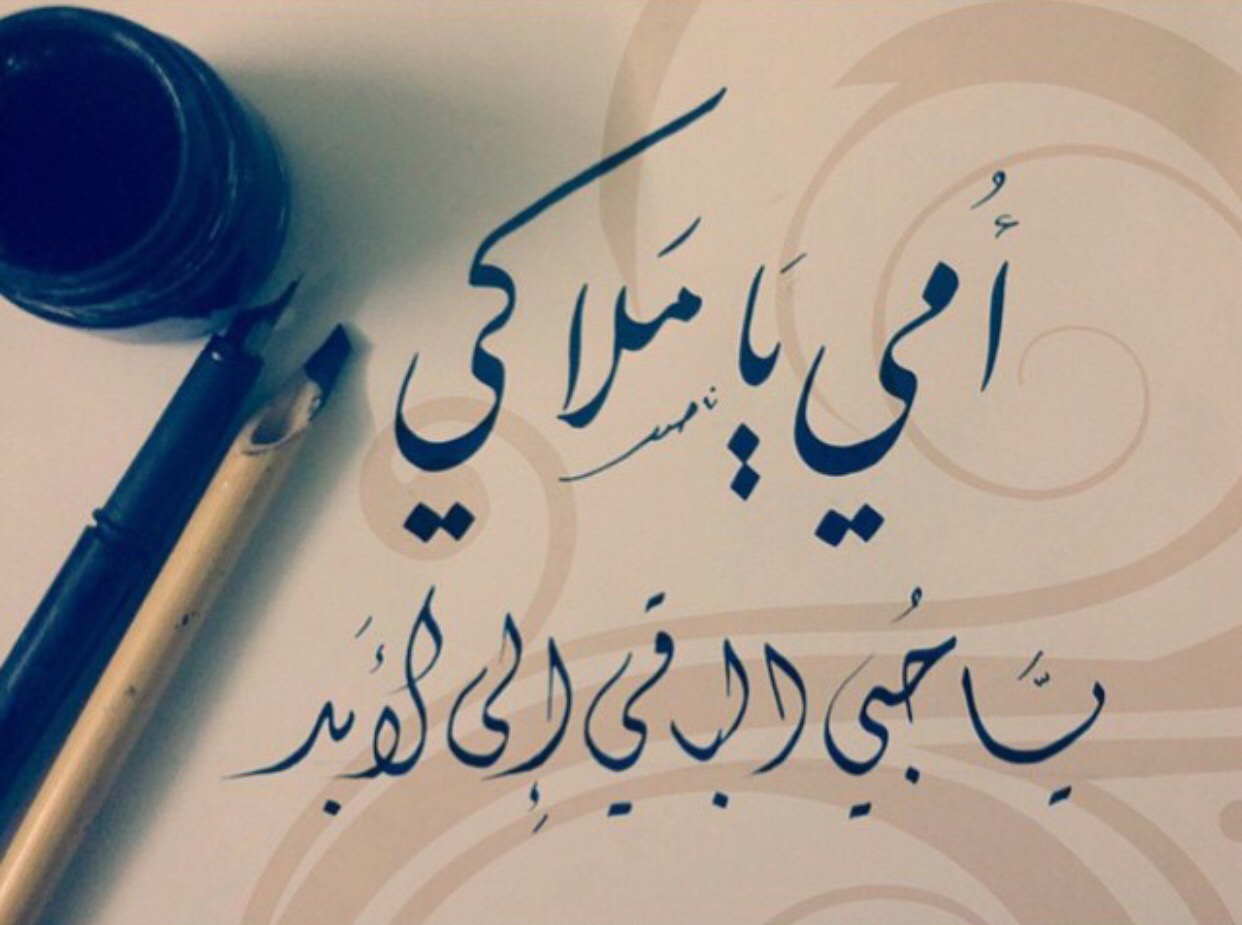 أُمي يَا مَلاكي
ناصر
يَّا حُبي الباقي إلى لأَبد